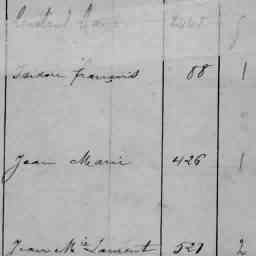 Isidore françois 88 1
Jean Marie 426 1
Jean Mie Laurent 521 2